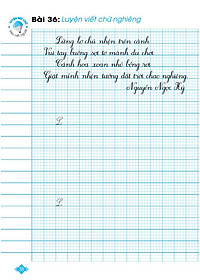 Bài 36: Luyện viết chữ nghiêng
Lửng lơ chú nhện trên cành
Vui tay buông sợi tơ mành đu chơi
Cánh hoa xoan nhỏ bỗng rơi
Giật mình nhện tưởng đất trời chao nghiêng.
Nguyễn Ngọc Ký
L
L